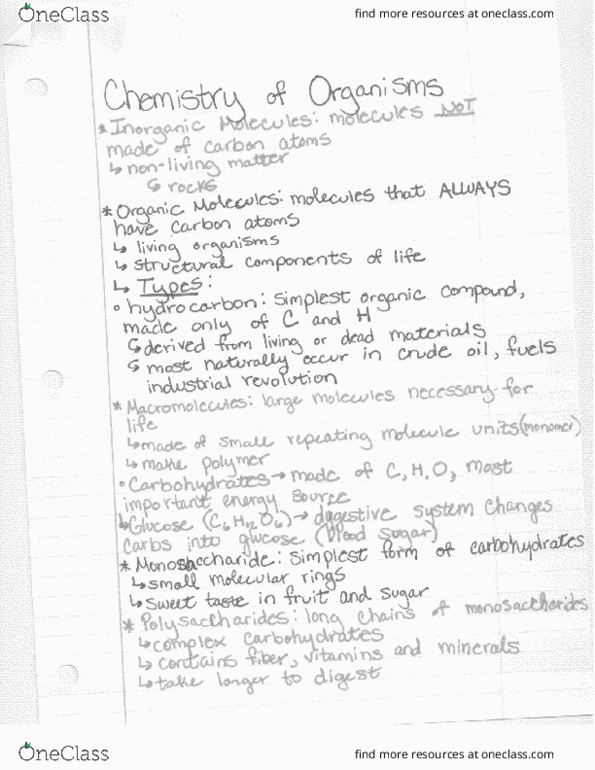 OneClass
find more resources at oneclass.com
Chemistry of Organisms
* Inorganic Molecules: molecules NOT
made of carbon atoms
↳ non-living matter
↳ rocks
* Organic Molecules: molecules that ALWAYS
have carbon atoms
↳ living organisms
↳ structural components of life
↳ Types:
° hydrocarbon: simplest organic compound,
made only of C and H
↳ derived from living or dead materials
↳ most naturally occur in crude oil, fuels
industrial revolution
* Macromolecules: large molecules necessary for
life
↳ made of small repeating molecule units (monomer)
↳ make polymer
° Carbohydrates → made of C, H, O, most
important energy source
↳ Glucose (C6H12O6) → digestive system changes
carbs into glucose (blood sugar)
* Monosaccharide: simplest form of carbohydrates
↳ small molecular rings
↳ sweet taste in fruit and sugar
* Polysaccharides: long chains of monosaccharides
↳ complex carbohydrates
↳ contains fiber, vitamins and minerals
↳ take longer to digest
OneClass
find more resources at oneclass.com